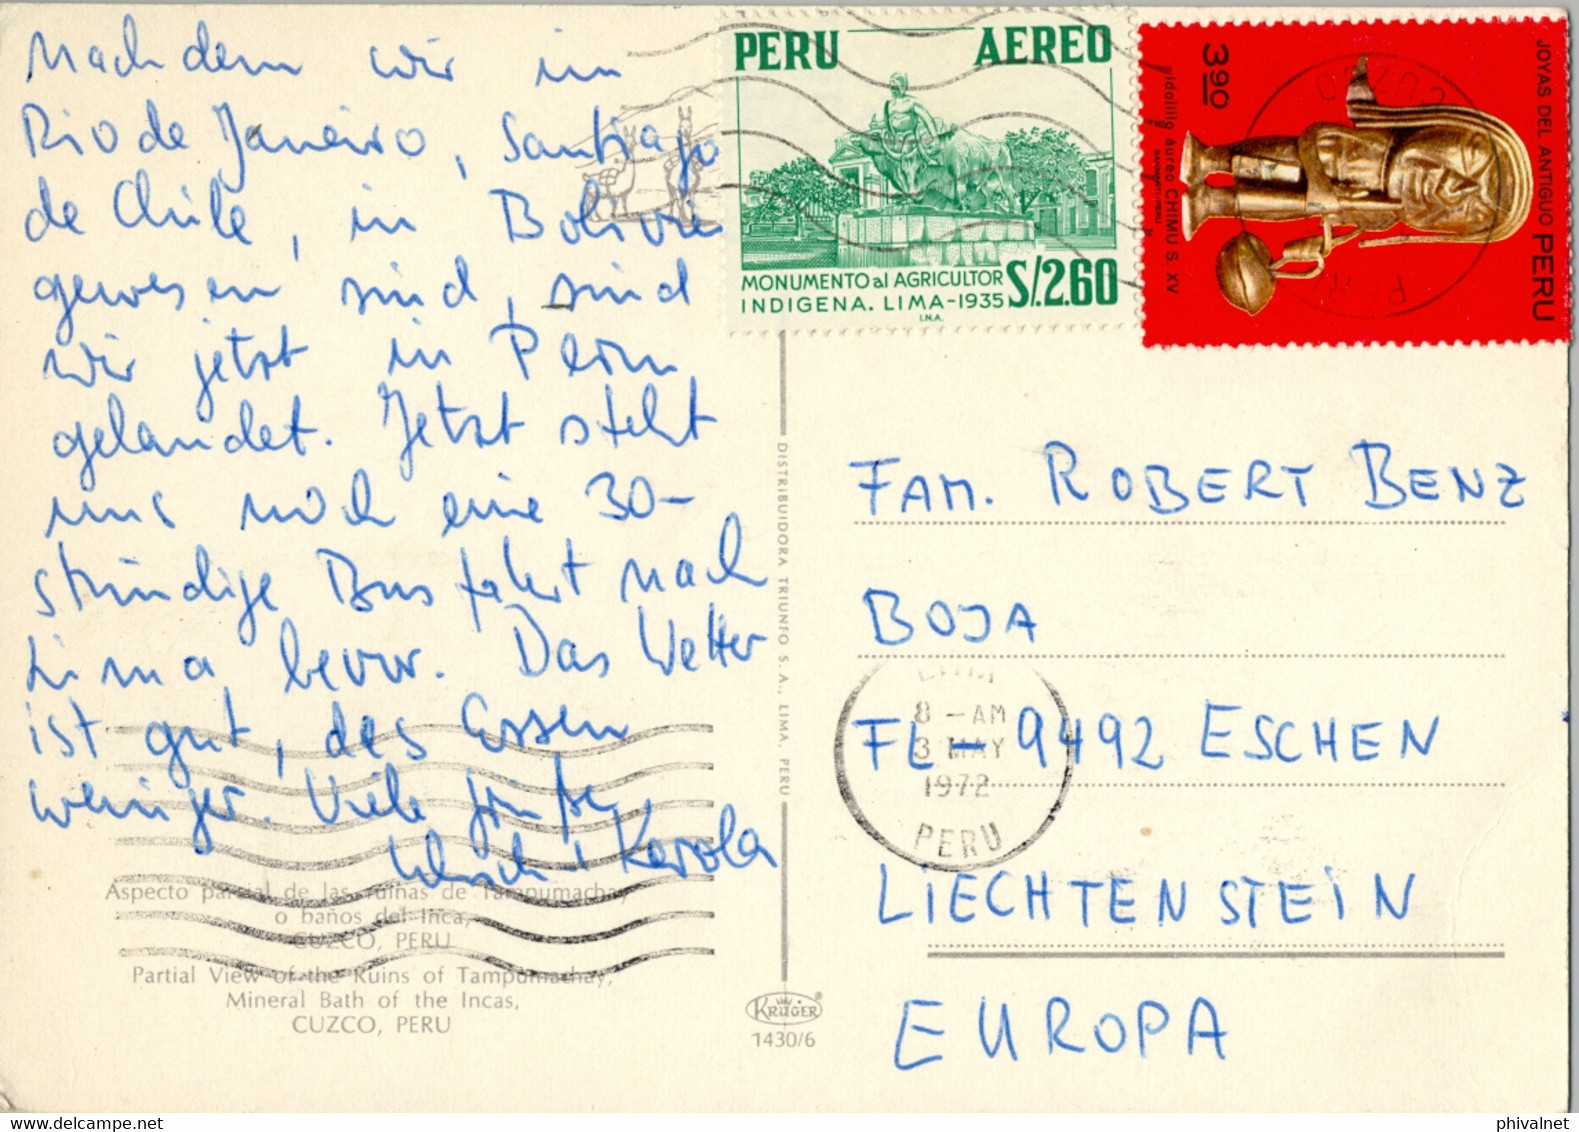 Nachdem wir im
Rio de Janeiro, Santiago
de Chile, in Bolivie
gewesen sind, sind
wir jetzt in Peru
gelandet. Jetzt steht
uns noch eine 30-
stündige Bus fahrt nach
Lima bevor. Das Wetter
ist gut, das Essen
weniger. Viele Grüße
+ Karola
Aspecto parcial de las ruinas de Tampumachay
o baños del Inca,
CUZCO, PERU
Partial View of the Ruins of Tampumachay,
Mineral Bath of the Incas,
CUZCO, PERU
DISTRIBUIDORA TRIUNFO S. A., LIMA, PERU
KRÜGER®
1430/6
PERU AEREO
MONUMENTO al AGRICULTOR
INDIGENA. LIMA-1935 S/.2.60
I.N.A.
JOYAS DEL ANTIGUO PERU
3.90
idolillo áureo CHIMU S. XV
CUZCO
FAM. ROBERT BENZ
BOJA
FL-9492 ESCHEN
LIECHTENSTEIN
EUROPA
8 - AM
3 MAY
1972
PERU
phivalnet